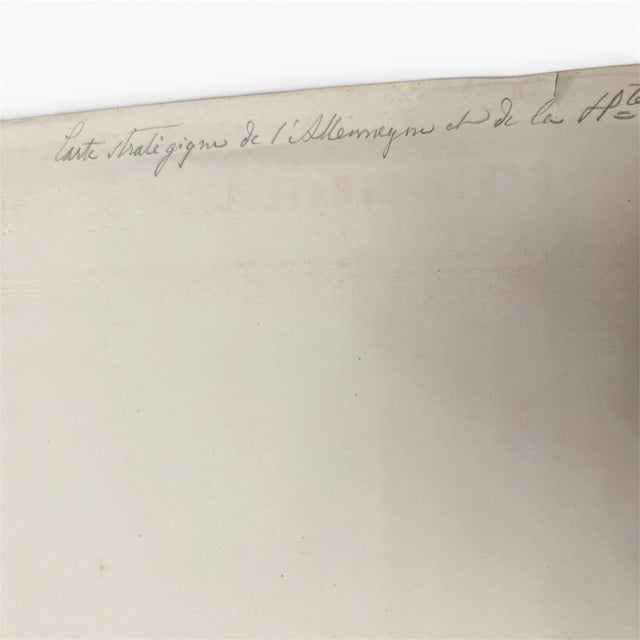 Carte stratégique de l'Allemagne et de la Hte